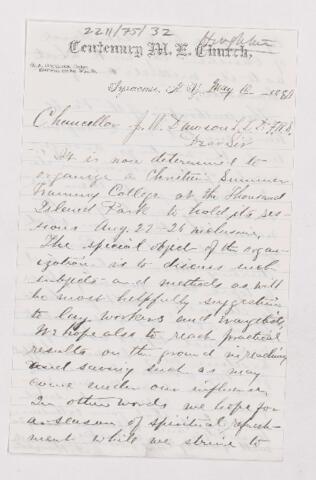 2211/75/32
Centenary M. E. Church,
Syracuse, N. Y., May 6 1884
Chancellor J. W. Dawson L.L.D. F.R.S.
Dear Sir
It is now determined to
organize a Christian Summer
Training College at the Thousand
Island Park to hold its ses-
sions Aug. 22-26 inclusive.
The special object of the organ-
ization is to discuss such
subjects and methods as will
be most helpfully suggestive
to lay workers and Evangelists.
We hope also to reach practical
results on the ground in reaching
and saving such as may
come under our influence.
In other words we hope for
a season of spiritual refresh-
ment while we strive to